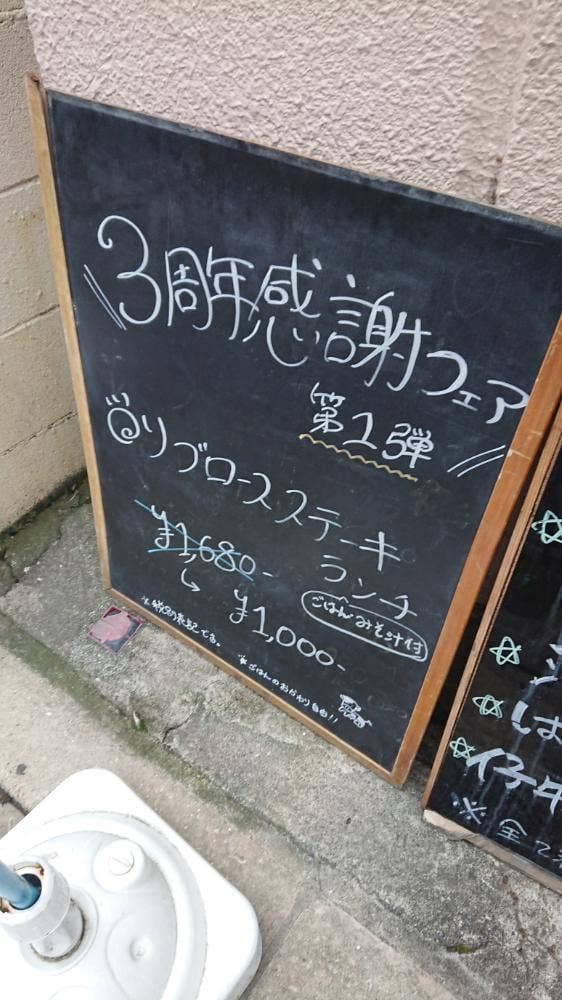 3周年感謝フェア
第1弾
リブロースステーキ
ランチ
¥1,680-
ごはんみそ汁付
¥1,000-
※税別表記です。
※ごはんのおかわり自由!!
は
仔牛
※全て